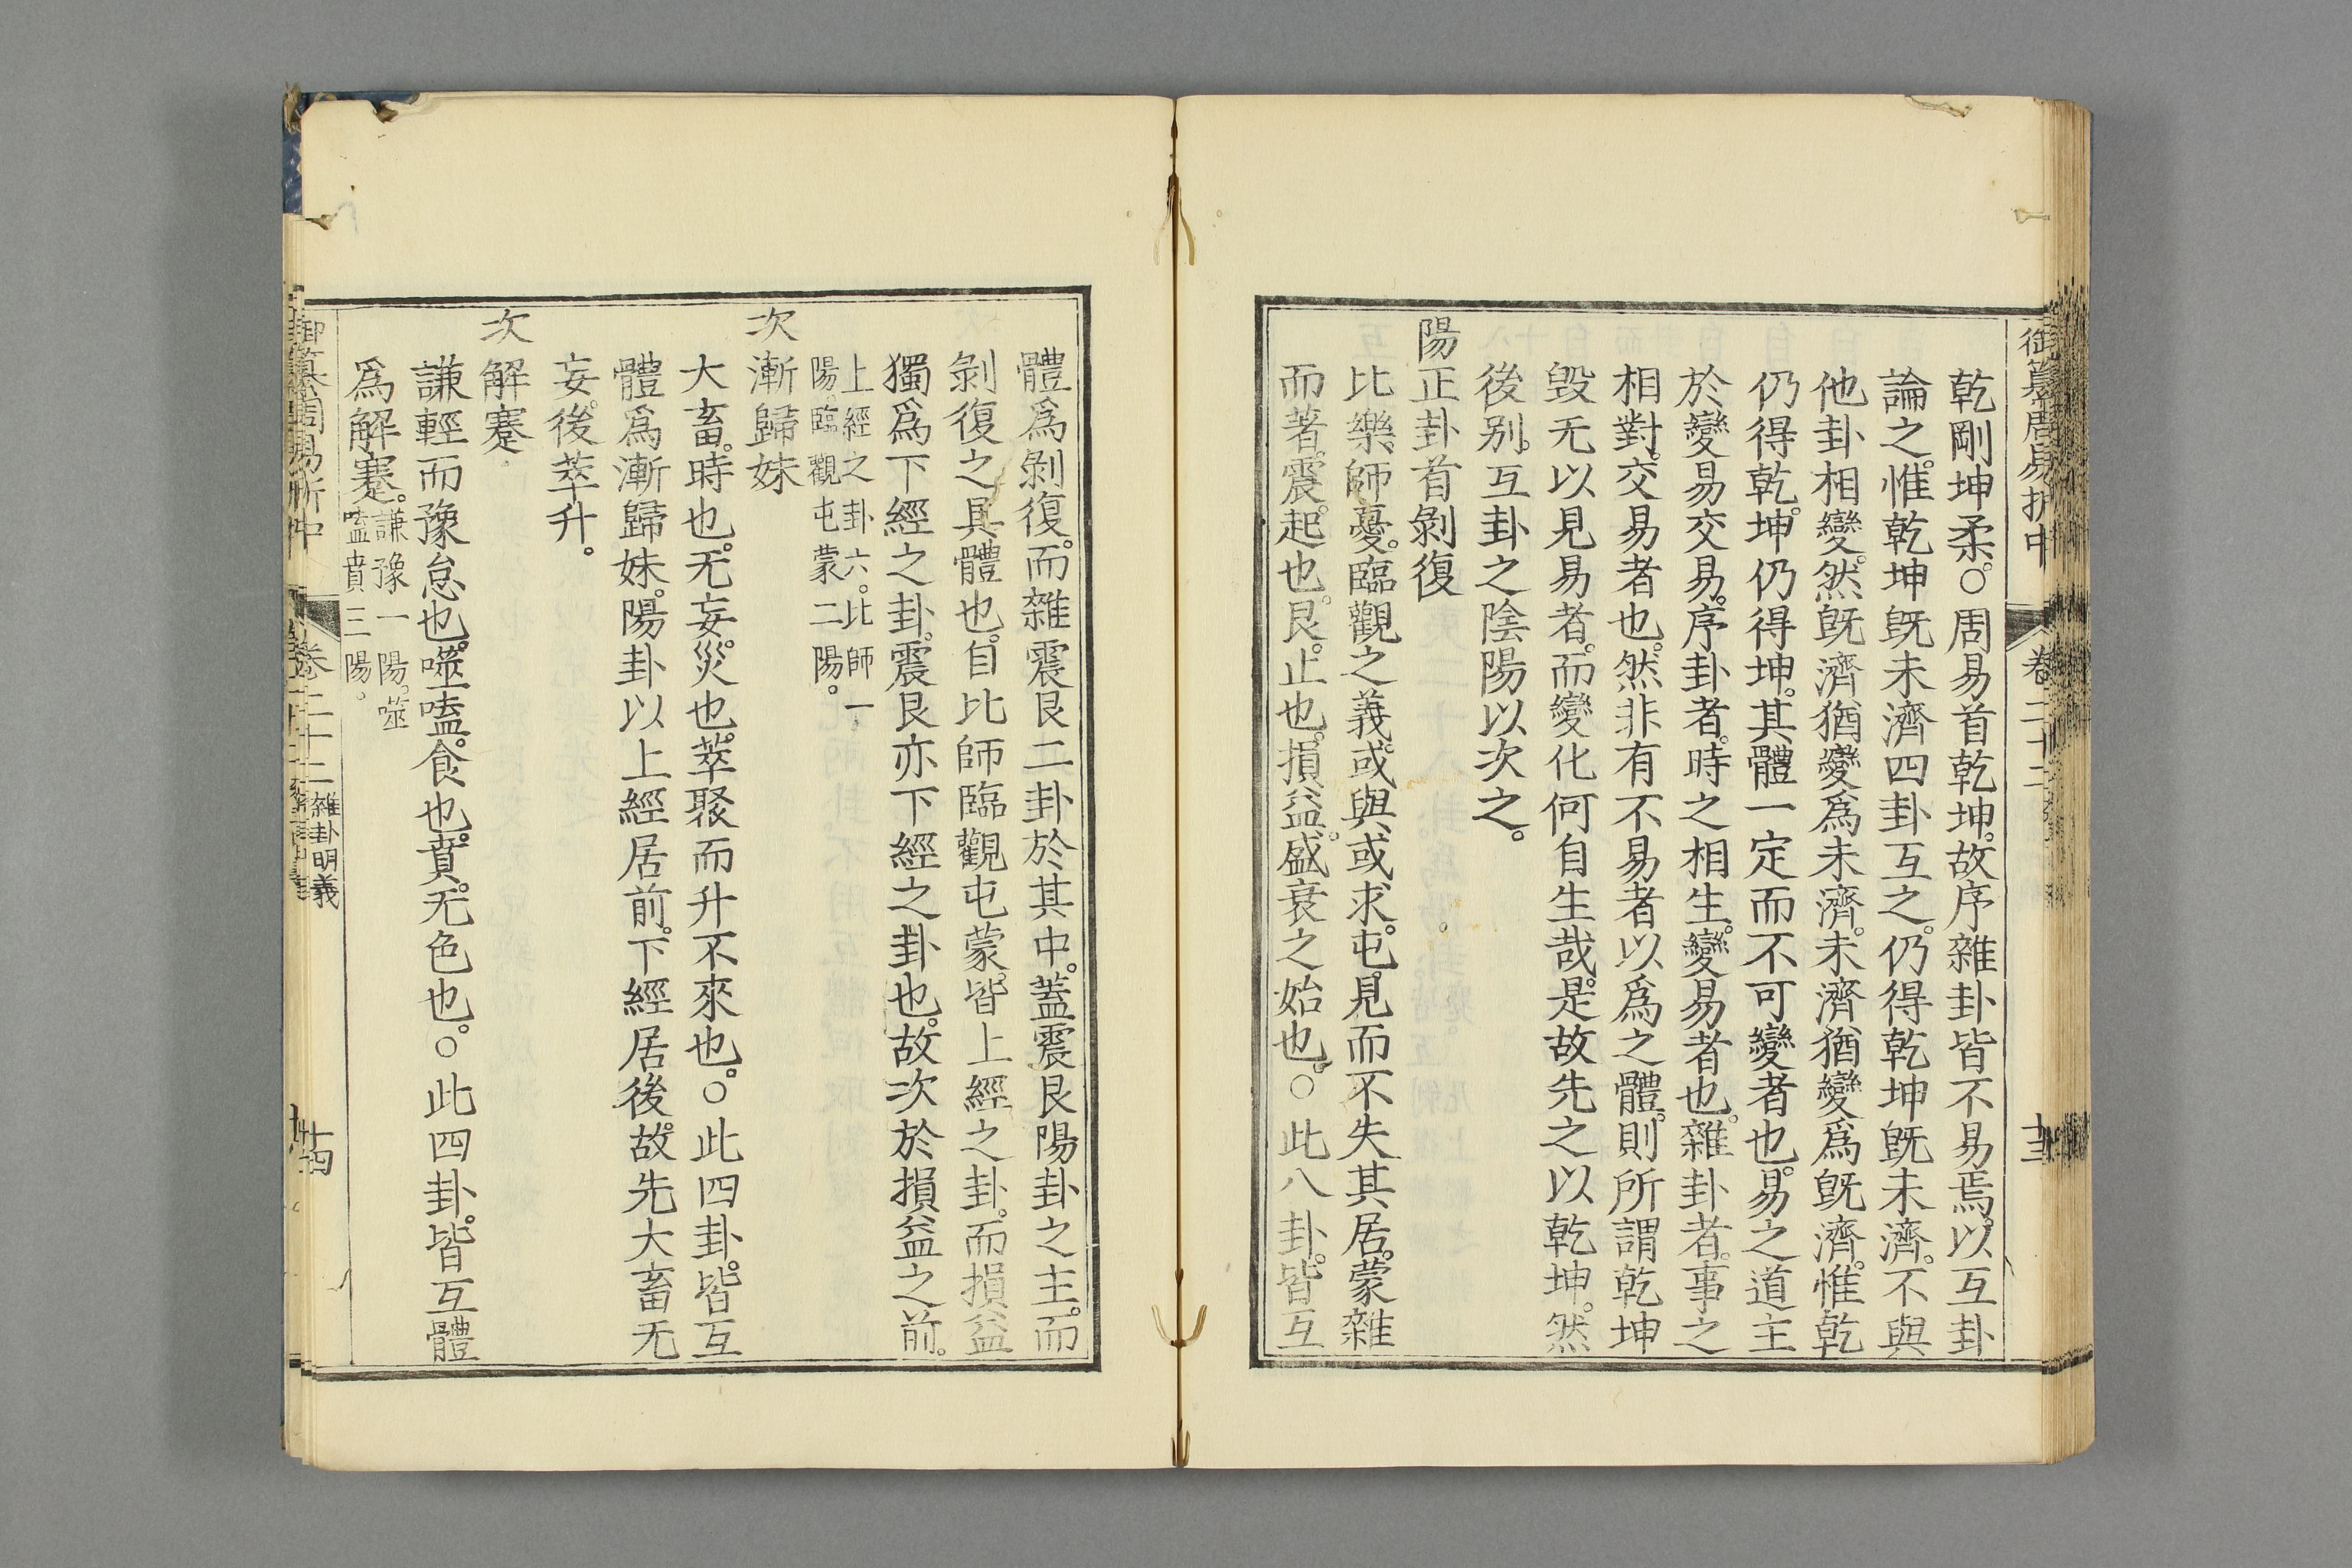 御纂周易折中
卷二十二
十三
乾剛坤柔。○周易首乾坤。故序雜卦皆不易焉。以互卦
論之。惟乾坤旣未濟四卦互之。仍得乾坤旣未濟。不與
他卦相變。然旣濟猶變爲未濟。未濟猶變爲旣濟。惟乾
仍得乾。坤仍得坤。其體一定而不可變者也。易之道主
於變易交易。序卦者。時之相生。變易者也。雜卦者。事之
相對。交易者也。然非有不易者以爲之體。則所謂乾坤
毁无以見易者。而變化何自生哉。是故先之以乾坤。然
後别。互卦之陰陽以次之。
陽正卦首剝復
比樂。師憂。臨觀之義。或與或求。屯。見而不失其居。蒙雜
而著。震。起也。艮。止也。損益。盛衰之始也。○此八卦。皆互
體爲剝復。而雜震艮二卦於其中。蓋震艮陽卦之主。而
剝復之具體也。自比師臨觀屯蒙。皆上經之卦。而損益
獨爲下經之卦。震艮亦下經之卦也。故次於損益之前。
上經之卦六。比師一
陽。臨觀屯蒙二陽。
次漸歸妹
大畜。時也。无妄。災也。萃聚而升不來也。○此四卦。皆互
體爲漸歸妹。陽卦以上經居前。下經居後。故先大畜无
妄。後萃升。
次解蹇
謙輕而豫怠也。噬嗑。食也。賁。无色也。○此四卦。皆互體
爲解蹇。謙豫一陽。噬
嗑賁三陽。
御纂周易折中
卷二十二
雜卦明義
十四